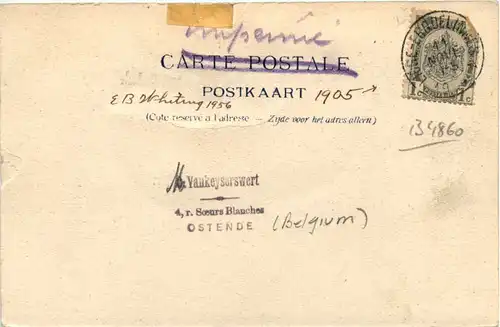 Imprimé
CARTE POSTALE
POSTKAART 1905
1956
(Côté réservé à l'adresse — Zijde voor het adres alleen)
B4860
Vankeyserswert
4, r. Sœurs Blanches
OSTENDE (Belgium)